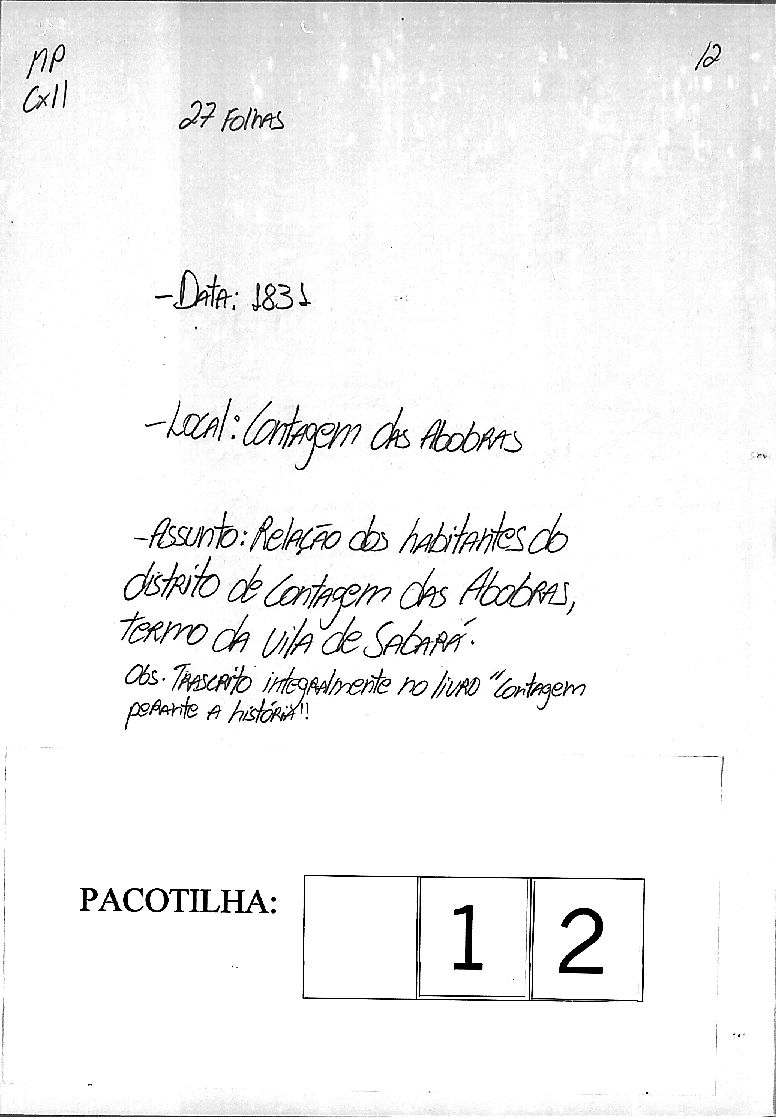 MP
Cx11
12
27 Folhas
- Data: 1831
- Local: Contagem das Abobras
- Assunto: Relação dos habitantes do
distrito de Contagem das Abobras,
termo da Vila de Sabará.
Obs. Trascrito integralmente no livro "Contagem
perante a história"!
PACOTILHA: 1 2